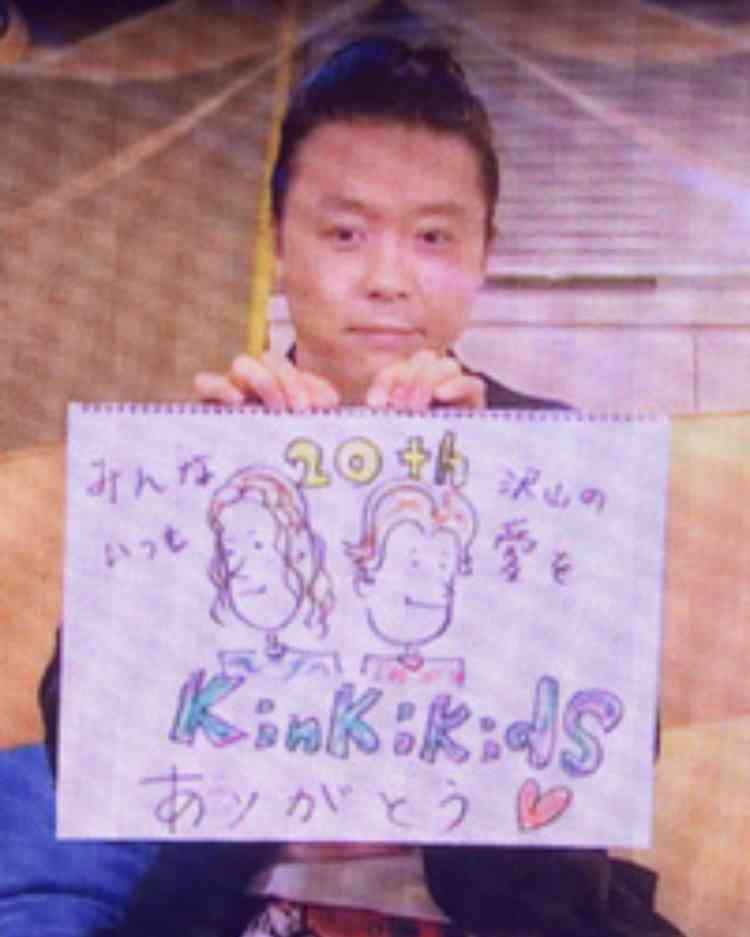 20th
みんな
いつも
沢山の
愛を
KinKiKidS
ありがとう